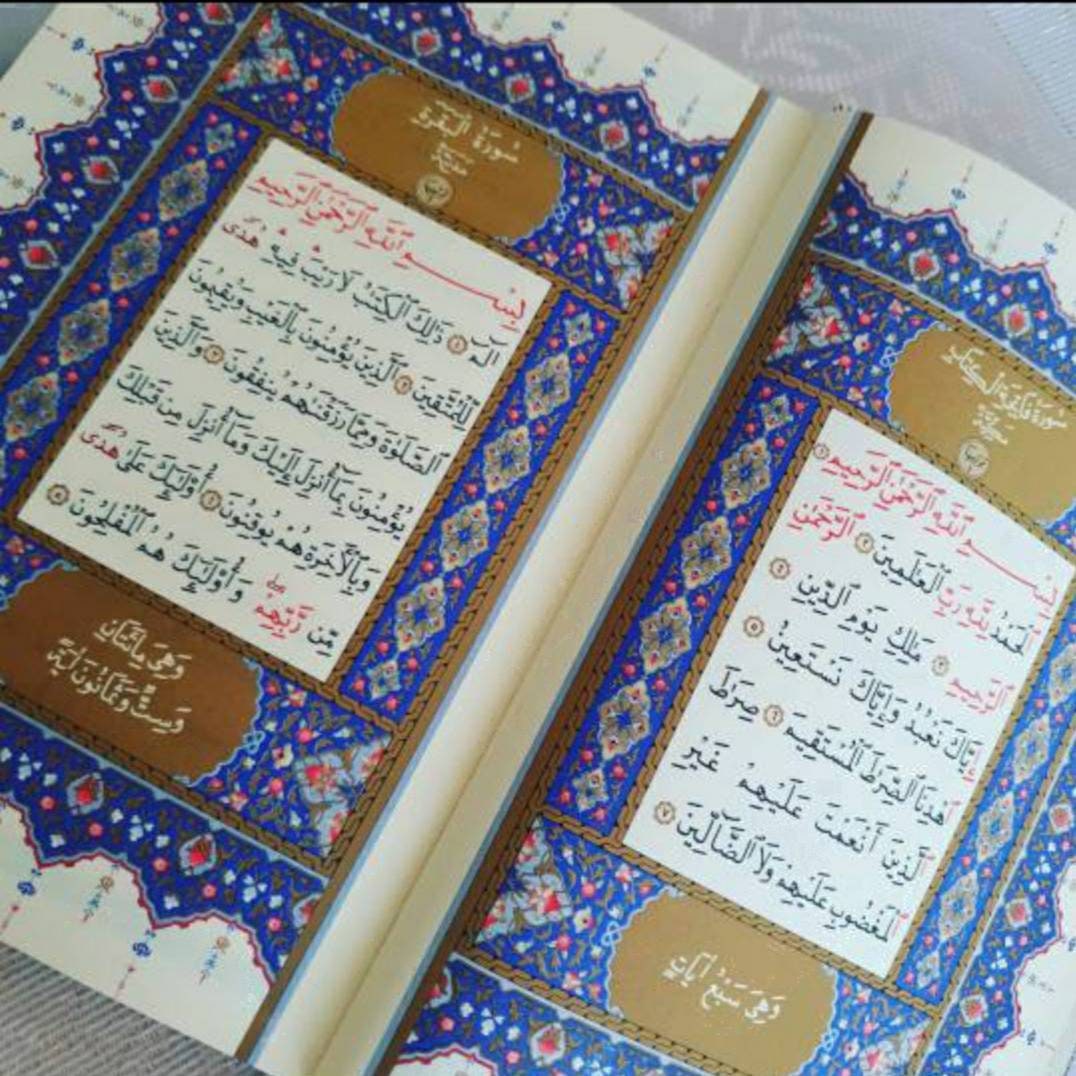 سُورَةُ فَاتِحَةِ الْكِتَابِ
بِسْمِ ٱللَّهِ ٱلرَّحْمَٰنِ ٱلرَّحِيمِ ١
ٱلْحَمْدُ لِلَّهِ رَبِّ ٱلْعَٰلَمِينَ ٢ ٱلرَّحْمَٰنِ
ٱلرَّحِيمِ ٣ مَٰلِكِ يَوْمِ ٱلدِّينِ ٤
إِيَّاكَ نَعْبُدُ وَإِيَّاكَ نَسْتَعِينُ ٥
ٱهْدِنَا ٱلصِّرَٰطَ ٱلْمُسْتَقِيمَ ٦ صِرَٰطَ
ٱلَّذِينَ أَنْعَمْتَ عَلَيْهِمْ غَيْرِ
ٱلْمَغْضُوبِ عَلَيْهِمْ وَلَا ٱلضَّآلِّينَ ٧
وَهِيَ سَبْعُ آيَاتٍ
سُورَةُ الْبَقَرَةِ
مَدَنِيَّة
بِسْمِ ٱللَّهِ ٱلرَّحْمَٰنِ ٱلرَّحِيمِ
الٓمٓ ١ ذَٰلِكَ ٱلْكِتَٰبُ لَا رَيْبَ ۛ فِيهِ ۛ هُدًى
لِّلْمُتَّقِينَ ٢ ٱلَّذِينَ يُؤْمِنُونَ بِٱلْغَيْبِ وَيُقِيمُونَ
ٱلصَّلَوٰةَ وَمِمَّا رَزَقْنَٰهُمْ يُنفِقُونَ ٣ وَٱلَّذِينَ
يُؤْمِنُونَ بِمَآ أُنزِلَ إِلَيْكَ وَمَآ أُنزِلَ مِن قَبْلِكَ
وَبِٱلْءَاخِرَةِ هُمْ يُوقِنُونَ ٤ أُو۟لَٰٓئِكَ عَلَىٰ هُدًى
مِّن رَّبِّهِمْ ۖ وَأُو۟لَٰٓئِكَ هُمُ ٱلْمُفْلِحُونَ ٥
وَهِيَ مِائَتَانِ
وَسِتٌّ وَثَمَانُونَ آيَةً